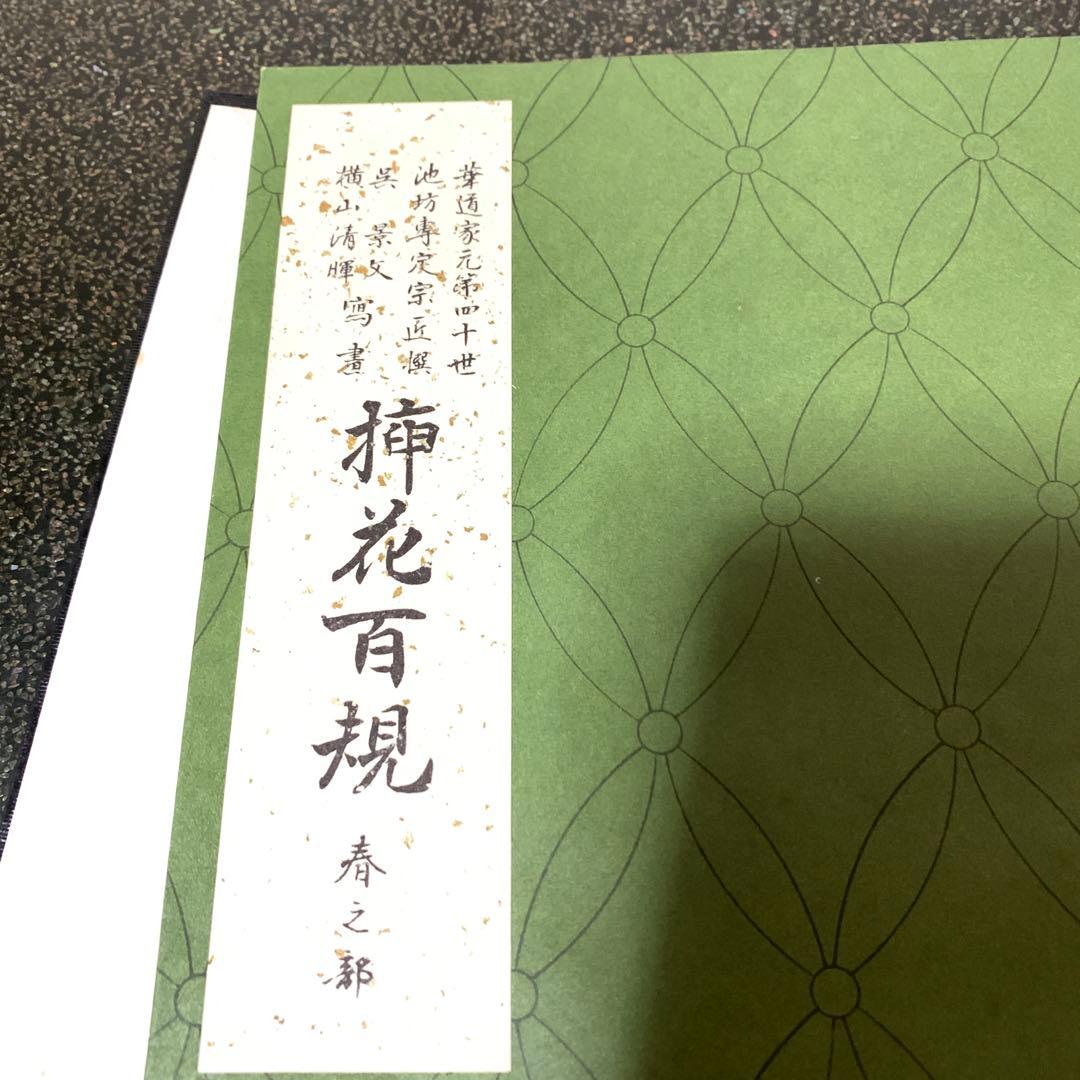 華道家元第四十世
池坊專定宗匠撰
呉景文
横山清暉寫畫
挿花百規
春之部